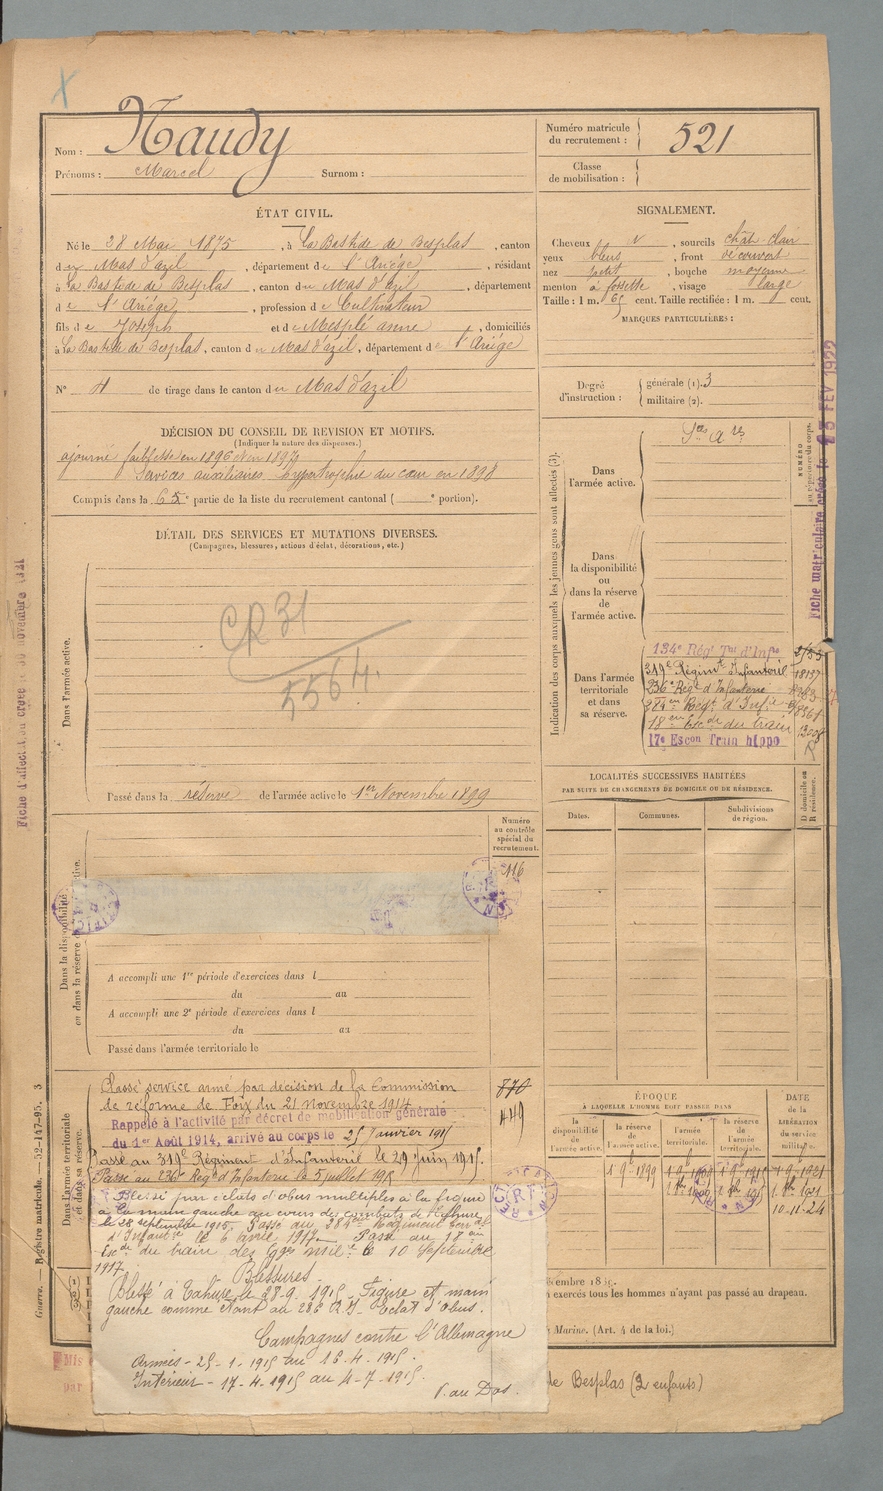 Nom : Naudy
Prénoms : Marcel Surnom :
Numéro matricule du recrutement : 521
Classe de mobilisation :
ÉTAT CIVIL.
Né le 28 Mai 1875, à La Bastide de Besplas, canton
du Mas d'azil, département de l'Ariége, résidant
à La Bastide de Besplas, canton du Mas d'azil, département
de l'Ariége, profession de Cultivateur
fils de Joseph et de Mesplé anne, domiciliés
à La Bastide de Besplas, canton du Mas d'azil, département de l'Ariége
N° 4 de tirage dans le canton du Mas d'azil
SIGNALEMENT.
Cheveux N, sourcils chât. clair
yeux bleus, front découvert
nez petit, bouche moyenne
menton à fossette, visage large
Taille : 1 m. 65 cent. Taille rectifiée : 1 m. cent.
MARQUES PARTICULIÈRES :
Degré d'instruction : générale (1). 3
militaire (2).
DÉCISION DU CONSEIL DE REVISION ET MOTIFS.
(Indiquer la nature des dispenses.)
ajourné faiblesse en 1896 et en 1897
Services auxiliaires hypertrophie du cœur en 1898
Compris dans la 6 5e partie de la liste du recrutement cantonal ( e portion).
DÉTAIL DES SERVICES ET MUTATIONS DIVERSES.
(Campagnes, blessures, actions d'éclat, décorations, etc.)
Dans l'armée active.
CR 31
5564.
Passé dans la réserve de l'armée active le 1er Novembre 1899
Indication des corps auxquels les jeunes gens sont affectés (3).
NUMÉRO
Dans l'armée active.
Dans la disponibilité ou dans la réserve de l'armée active.
Dans l'armée territoriale et dans sa réserve.
134e Régt Tal d'Infie
319e Régimt Infanterie 18137
236e Régt d'Infanterie
284em Régt d'Infie
18em Escdn du train
17e Escon Train hippo
Fiche matriculaire créée le 15 FEV 1922
LOCALITÉS SUCCESSIVES HABITÉES
PAR SUITE DE CHANGEMENTS DE DOMICILE OU DE RÉSIDENCE.
Dates. Communes. Subdivisions de région.
D domicile ou R résidence.
Numéro au contrôle spécial du recrutement.
116
Dans la disponibilité
ou dans la réserve
A accompli une 1re période d'exercices dans l
du au
A accompli une 2e période d'exercices dans l
du au
Passé dans l'armée territoriale le
Dans l'armée territoriale et dans sa réserve.
870
449
Classé service armé par décision de la Commission
de réforme de Foix du 21 novembre 1914
Rappelé à l'activité par décret de mobilisation générale
du 1er Août 1914, arrivé au corps le 25 Janvier 1915
Passé au 319e Régiment d'Infanterie le 29 Juin 1915.
Passé au 236e Régt d'Infanterie le 5 juillet 1915
Blessé par éclats d'obus multiples à la figure
à la main gauche au cours des combats de Tahure
le 28 septembre 1915. Passé au 284em Régiment
d'Infantie le 6 avril 1917 Passé au 18em
Escdn du train des Eqges milre le 10 Septembre
1917
Blessures
Blessé à Tahure le 28-9-1915 - Figure et main
gauche comme étant au 236 R.I. Eclat d'Obus.
Campagnes contre l'Allemagne
Armées - 25-1-1915 au 16-4-1915.
Intérieur - 17-4-1915 au 4-7-1915.
V. au Dos
RECTIFICATION
ÉPOQUE
À LAQUELLE L'HOMME DOIT PASSER DANS
la disponibilité de l'armée active.
la réserve de l'armée active.
l'armée territoriale.
la réserve de l'armée territoriale.
DATE de la LIBÉRATION du service militaire.
1 9bre 1899
10-11-24
exercés tous les hommes n'ayant pas passé au drapeau.
Marine. (Art. 4 de la loi.)
de Besplas (2 enfants)
Guerre. — Registre matricule. — 52-147-95. 3